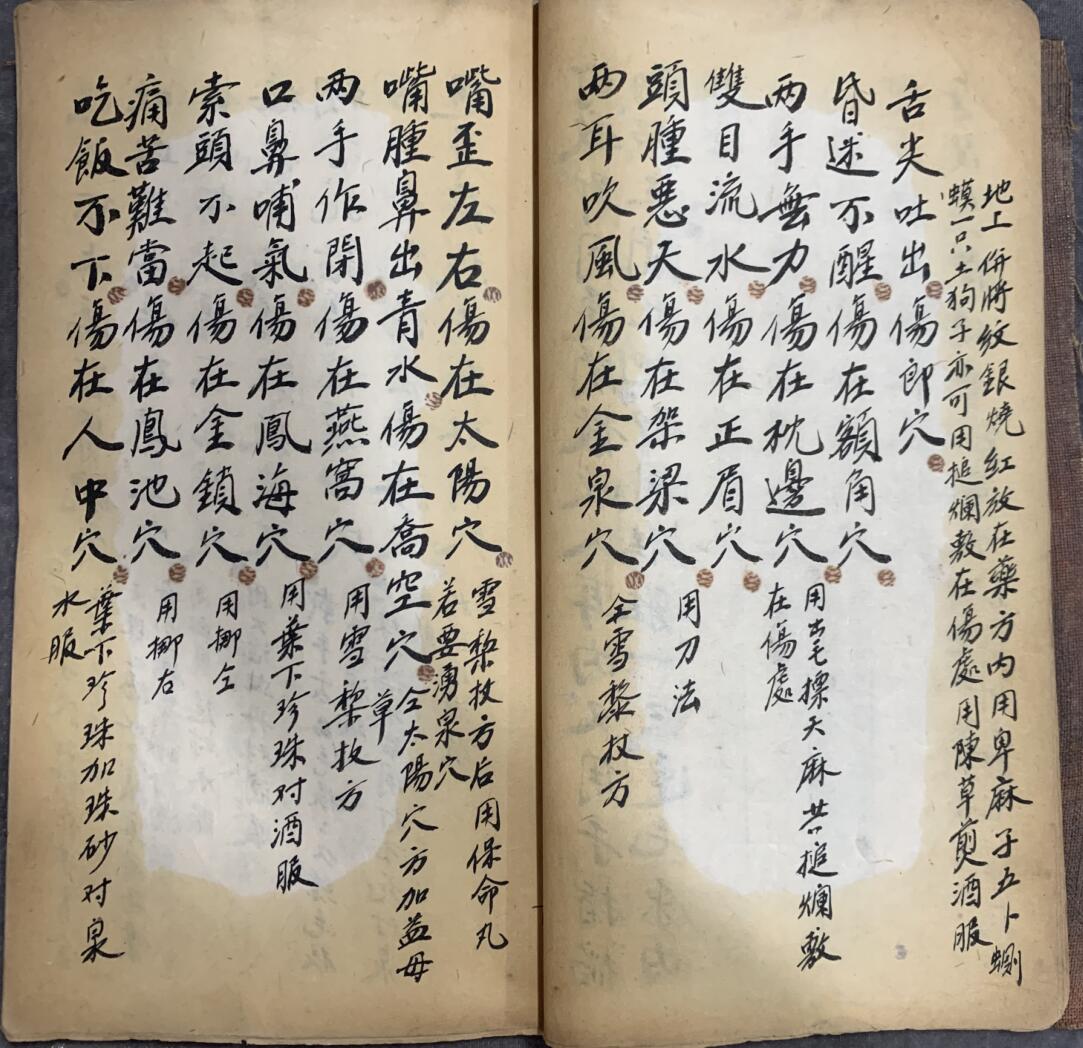 地上併將紋銀燒紅放在藥方内用卑麻子五卜蜊
蟆一只土狗子亦可用搥爛敷在傷處用陳草煎酒服
舌尖吐出傷郎穴
昏迷不醒傷在額角穴
两手無力傷在枕邊穴
用出毛摽天麻共搥爛敷
在傷處
雙目流水傷在正眉穴
頭腫惡天傷在架梁穴
用刀法
两耳吹風傷在金泉穴
仝雪黎扙方
嘴歪左右傷在太陽穴
雪梨扙方后用保命丸
若要湧泉穴
嘴腫鼻出青水傷在喬空穴
仝太陽穴方加益母
草
两手作閉傷在燕窩穴
用雪梨扙方
口鼻哺氣傷在鳳海穴
用葉下珍珠对酒服
索頭不起傷在金鎖穴
用挪左
痛苦難當傷在鳳池穴
用挪右
吃飯不下傷在人中穴
葉下珍珠加珠砂对泉
水服